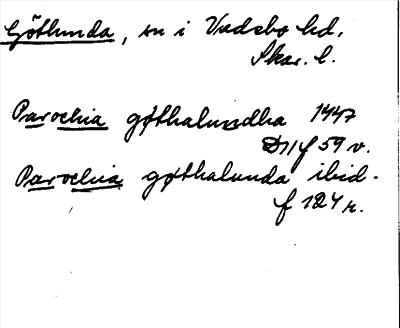 Götlunda, sn i Vadsbo hd,
Skar. l.
Parochia gøthalundha 1447
D11 f 59 v.
Parochia gøthalunda ibid.
f 124 r.